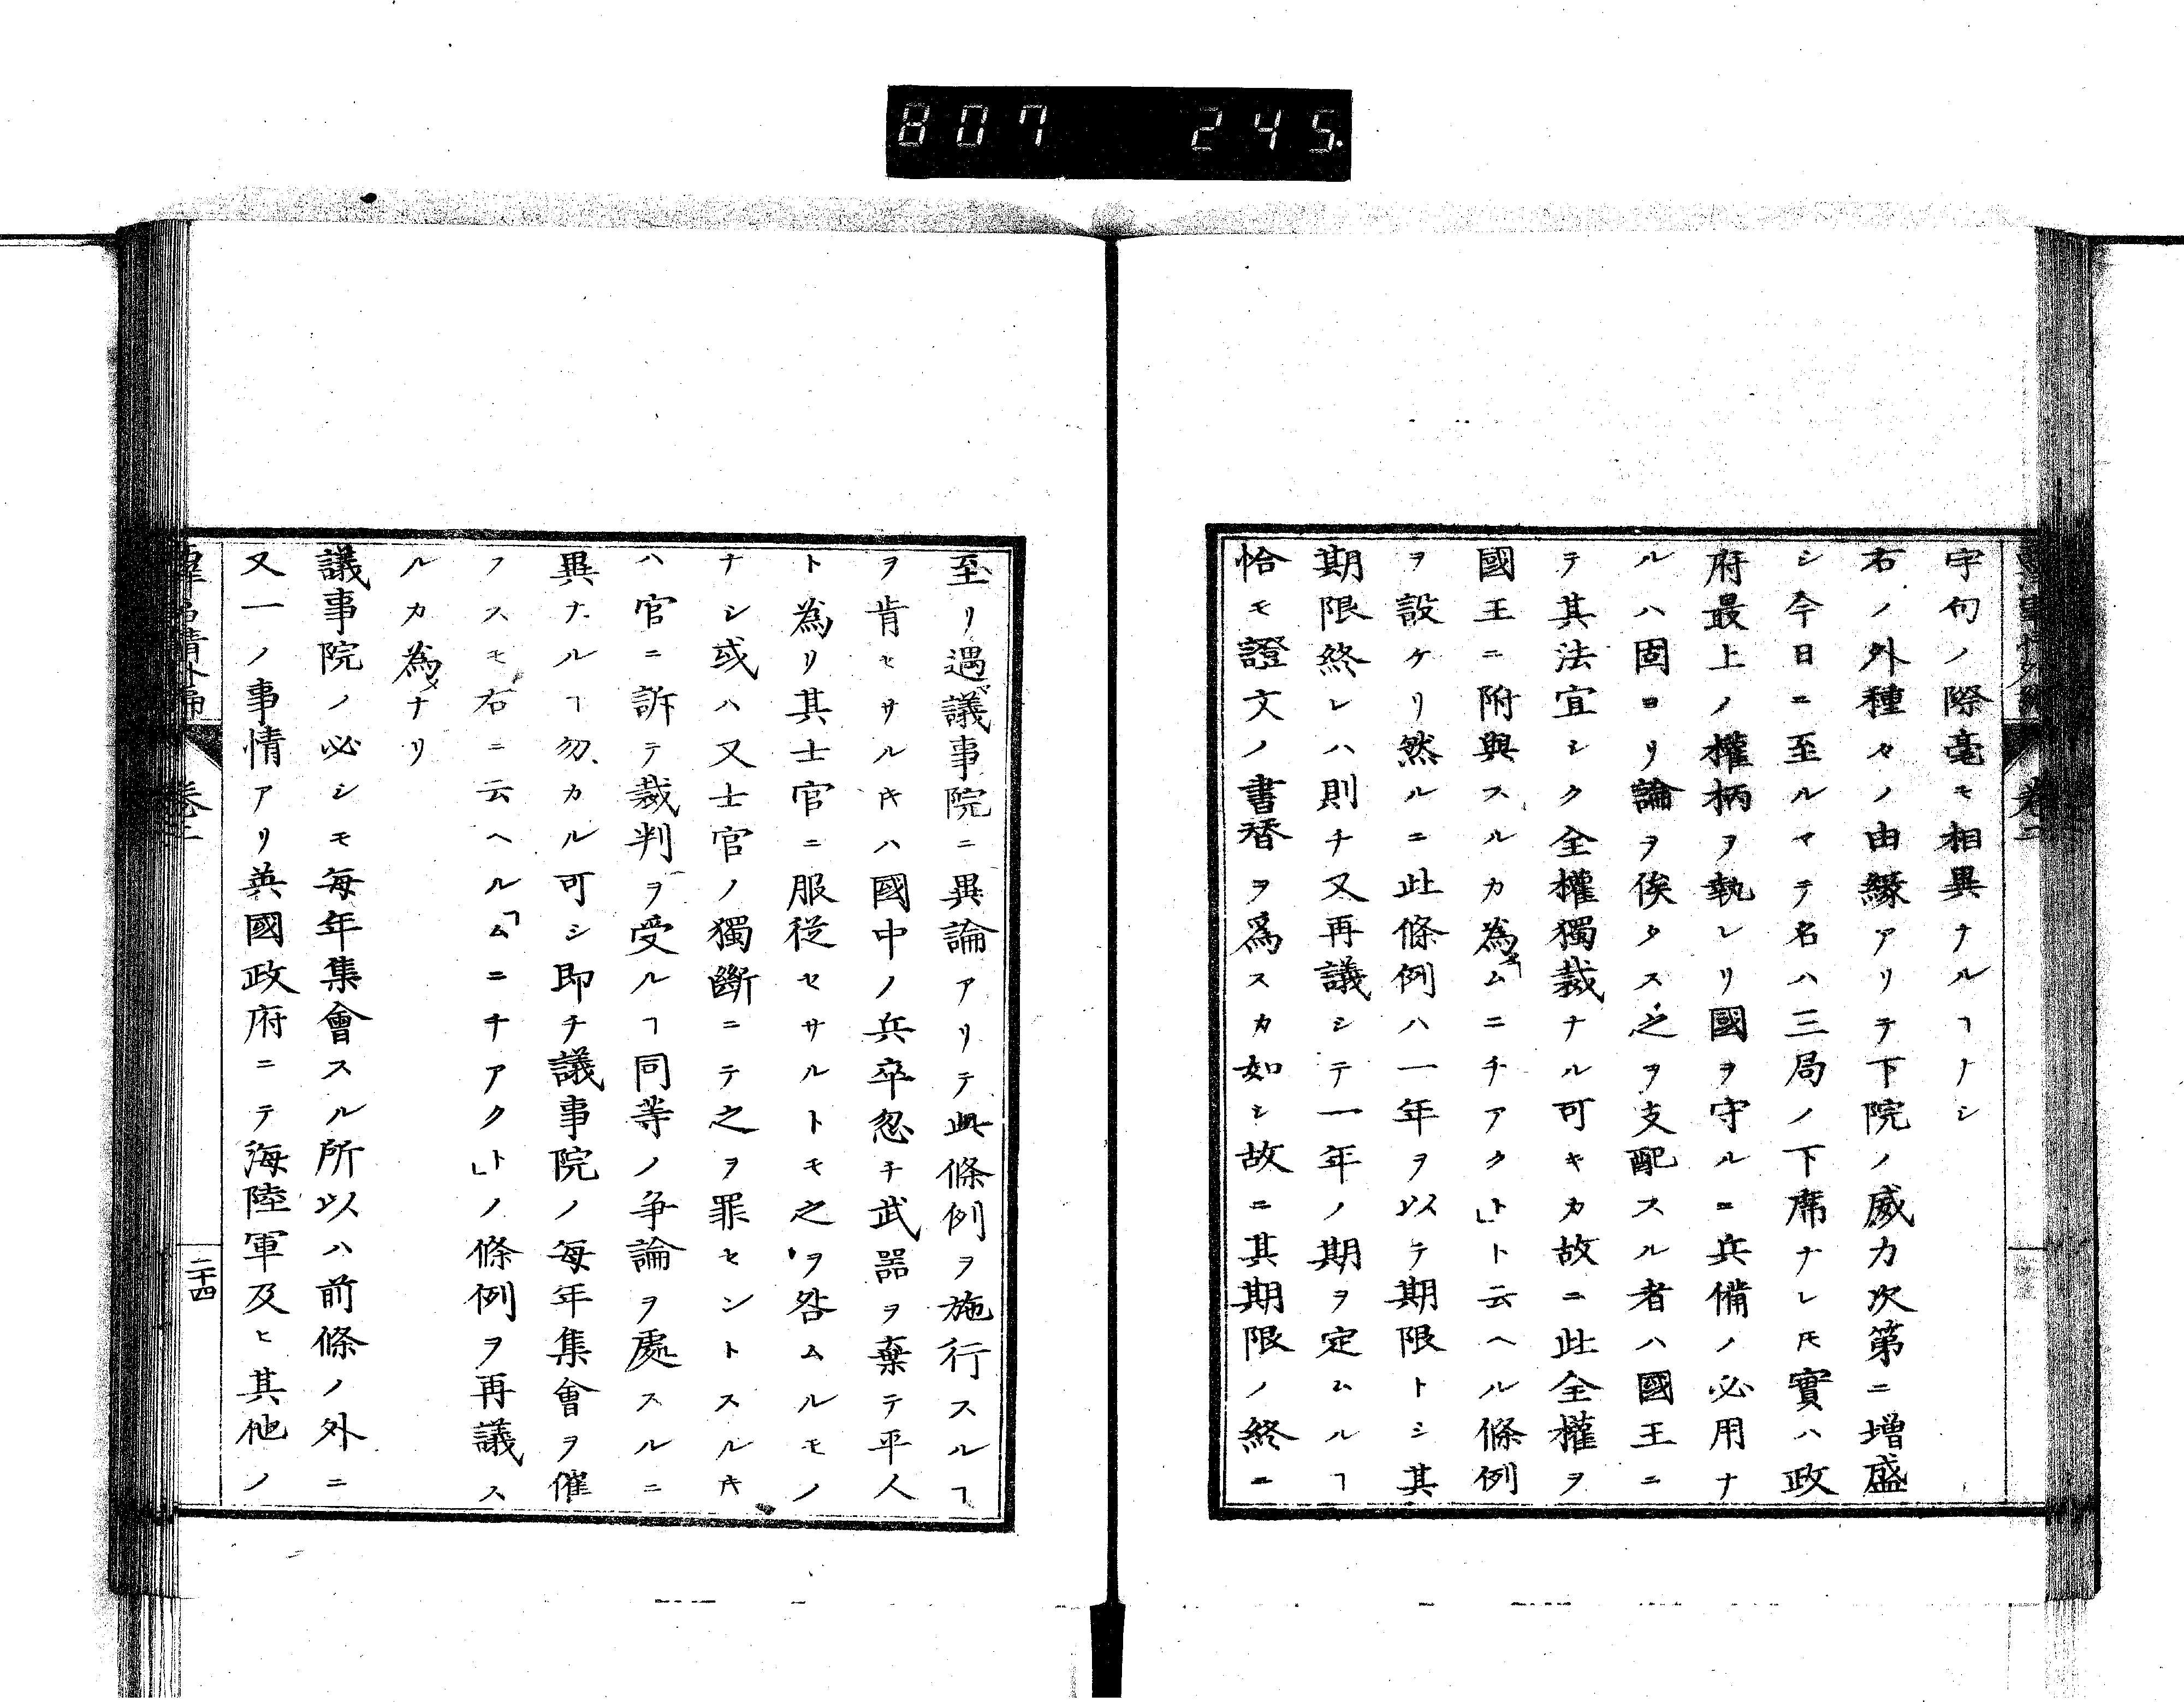 807 245
字句ノ際毫モ相異ナルヿナシ
右ノ外種々ノ由縁アリテ下院ノ威力次第ニ増盛
シ今日ニ至ルマテ名ハ三局ノ下席ナレ𪜈實ハ政
府最上ノ權柄ヲ執レリ國ヲ守ルニ兵備ノ必用ナ
ルハ固ヨリ論ヲ俟タス之ヲ支配スル者ハ國王ニ
テ其法宜シク全權獨裁ナル可キカ故ニ此全權ヲ
國王ニ附與スルカ為メ「ムニチアクト」ト云ヘル條例
ヲ設ケリ然ルニ此條例ハ一年ヲ以テ期限トシ其
期限終レハ則チ又再議シテ一年ノ期ヲ定ムルヿ
恰モ證文ノ書替ヲ爲スカ如シ故ニ其期限ノ終ニ
至リ遇議事院ニ異論アリテ此條例ヲ施行スルヿ
ヲ肯セサルキハ國中ノ兵卒忽チ武器ヲ棄テ平人
ト為リ其士官ニ服從セサルトモ之ヲ咎ムルモノ
ナシ或ハ又士官ノ獨斷ニテ之ヲ罪セントスルキ
ハ官ニ訴テ裁判ヲ受ルヿ同等ノ争論ヲ處スルニ
異ナルヿ勿カル可シ即チ議事院ノ毎年集會ヲ催
ノスモ右ニ云ヘル「ムニチアクト」ノ條例ヲ再議ス
ルカ為メナリ
議事院ノ必シモ毎年集會スル所以ハ前條ノ外ニ
又一ノ事情アリ英國政府ニテ海陸軍及ヒ其他ノ
卷二
二十四